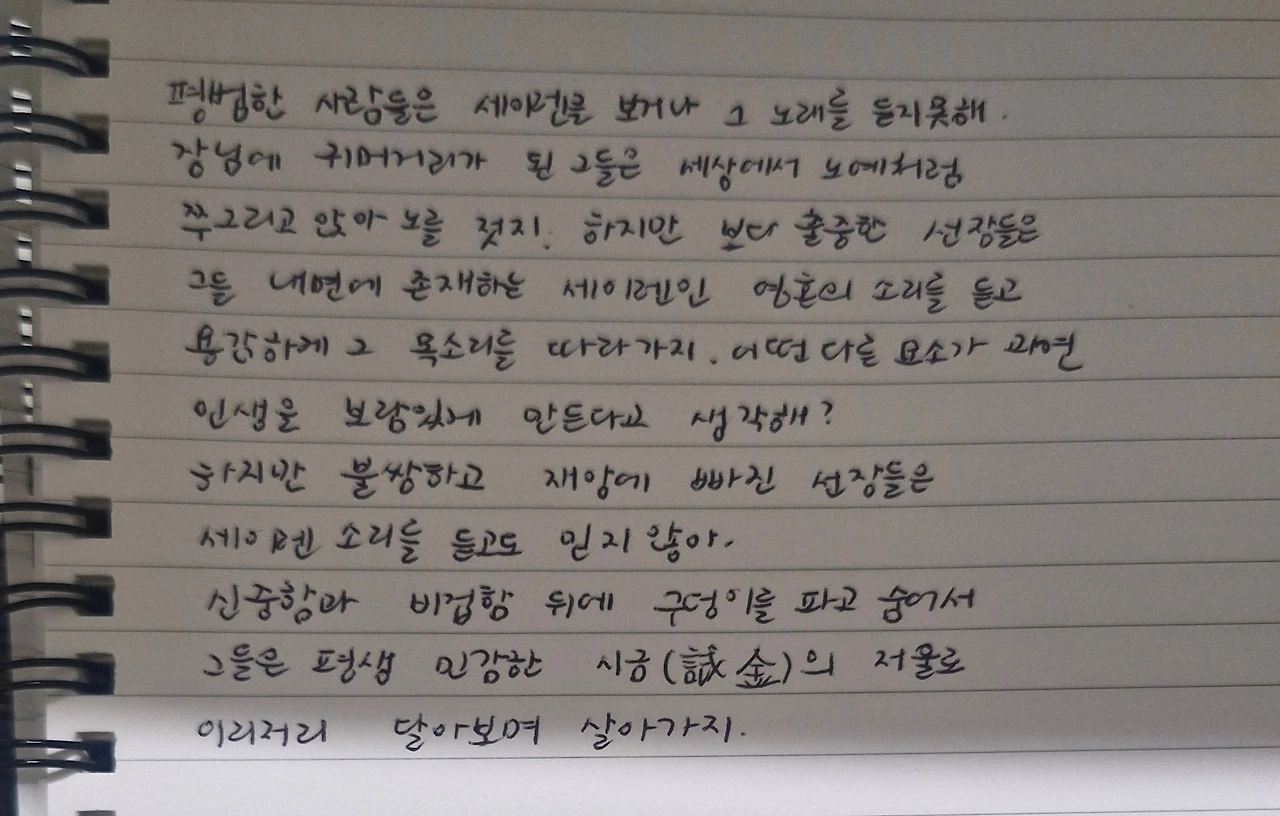 평범한 사람들은 세이렌을 보거나 그 노래를 듣지못해.
장님에 귀머거리가 된 그들은 세상에서 노예처럼
쭈그리고 앉아 노를 젓지. 하지만 보다 출중한 선장들은
그들 내면에 존재하는 세이렌인 영혼의 소리를 듣고
용감하게 그 목소리를 따라가지. 어떤 다른 요소가 과연
인생을 보람있게 만든다고 생각해?
하지만 불쌍하고 재앙에 빠진 선장들은
세이렌 소리를 듣고도 믿지 않아.
신중함과 비겁함 뒤에 구덩이를 파고 숨어서
그들은 평생 민감한 시금(試金)의 저울로
이리저리 달아보며 살아가지.